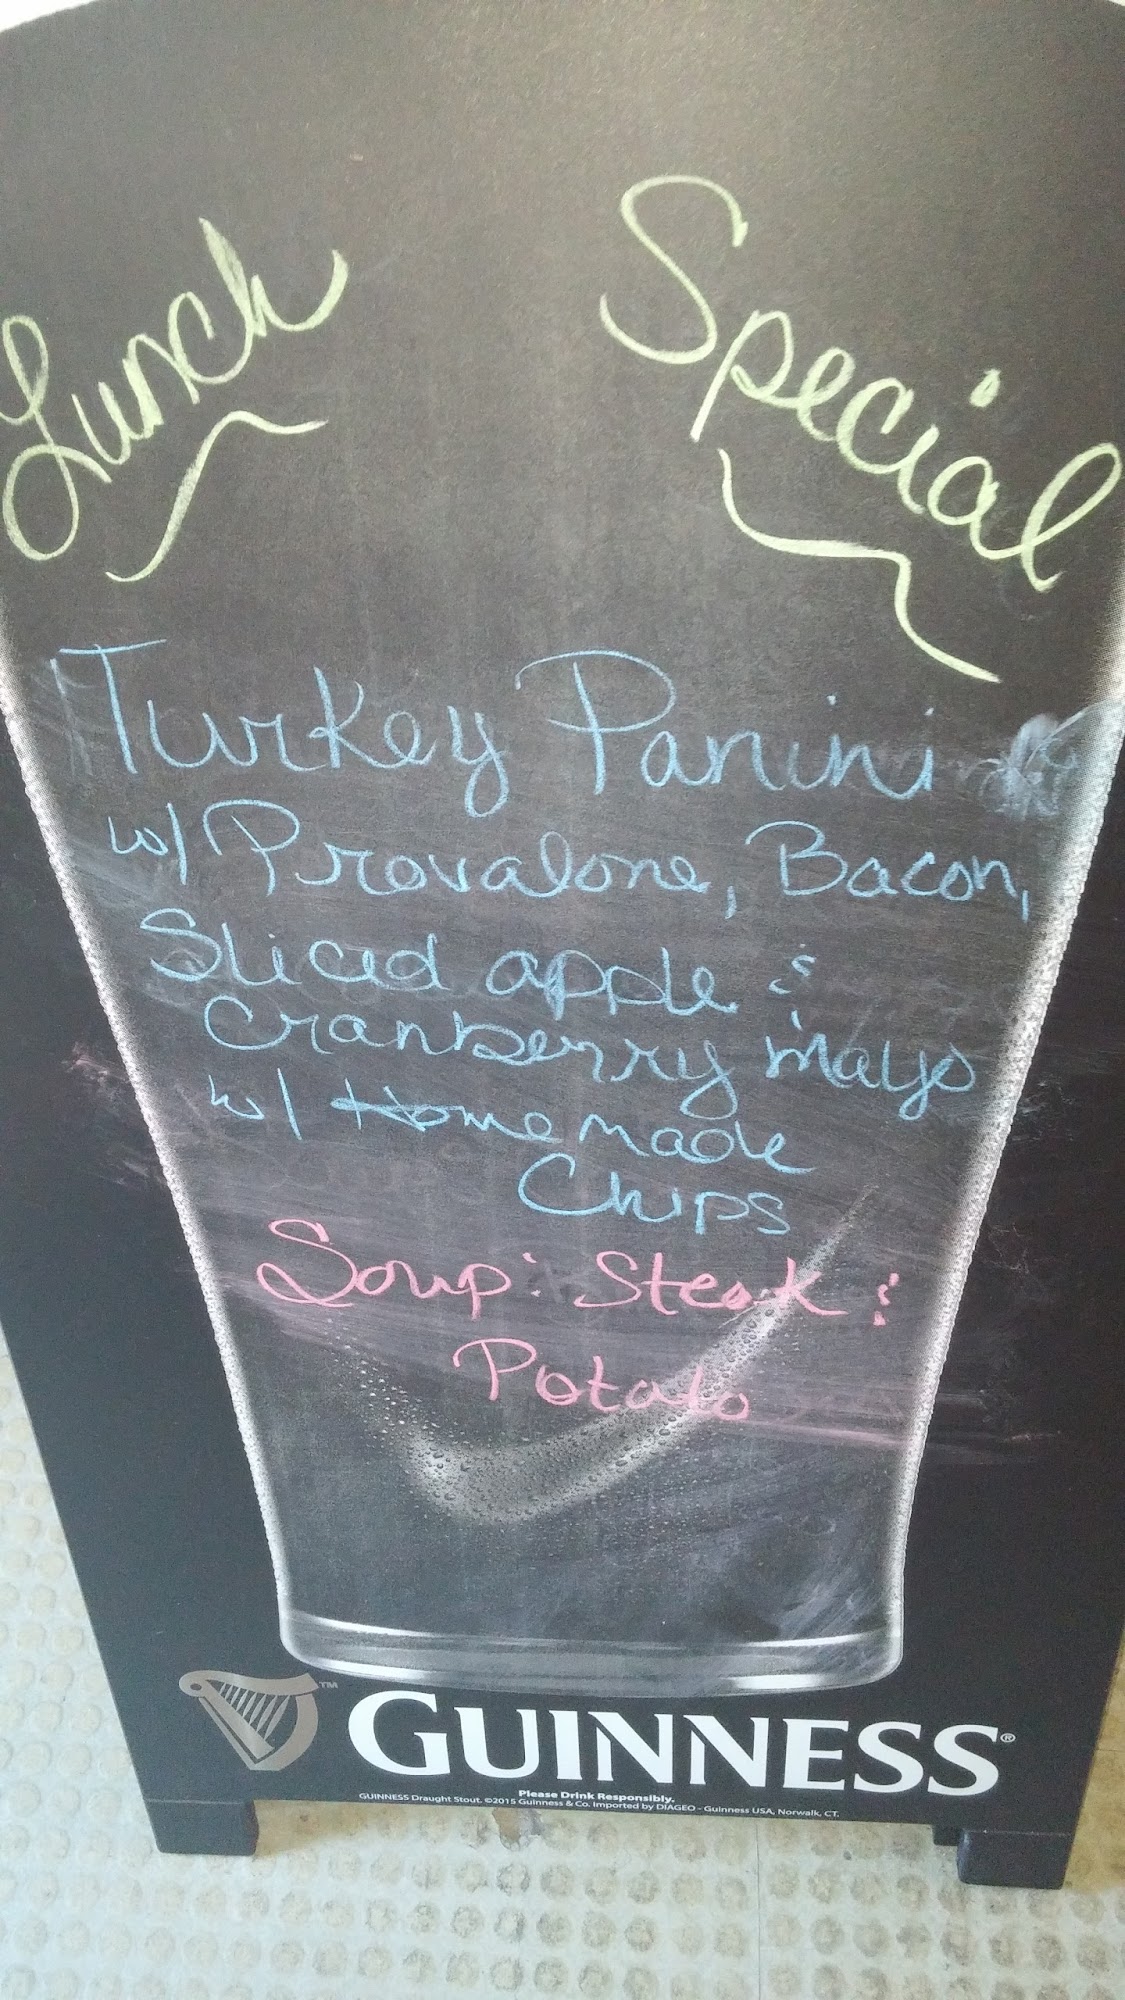 Lunch Special
Turkey Panini
w/ Provalone, Bacon,
Sliced apple &
Cranberry mayo
w/ Homemade
Chips
Soup: Steak &
Potato
GUINNESS®
Please Drink Responsibly.
GUINNESS Draught Stout. ©2015 Guinness & Co. Imported by DIAGEO - Guinness USA, Norwalk, CT.